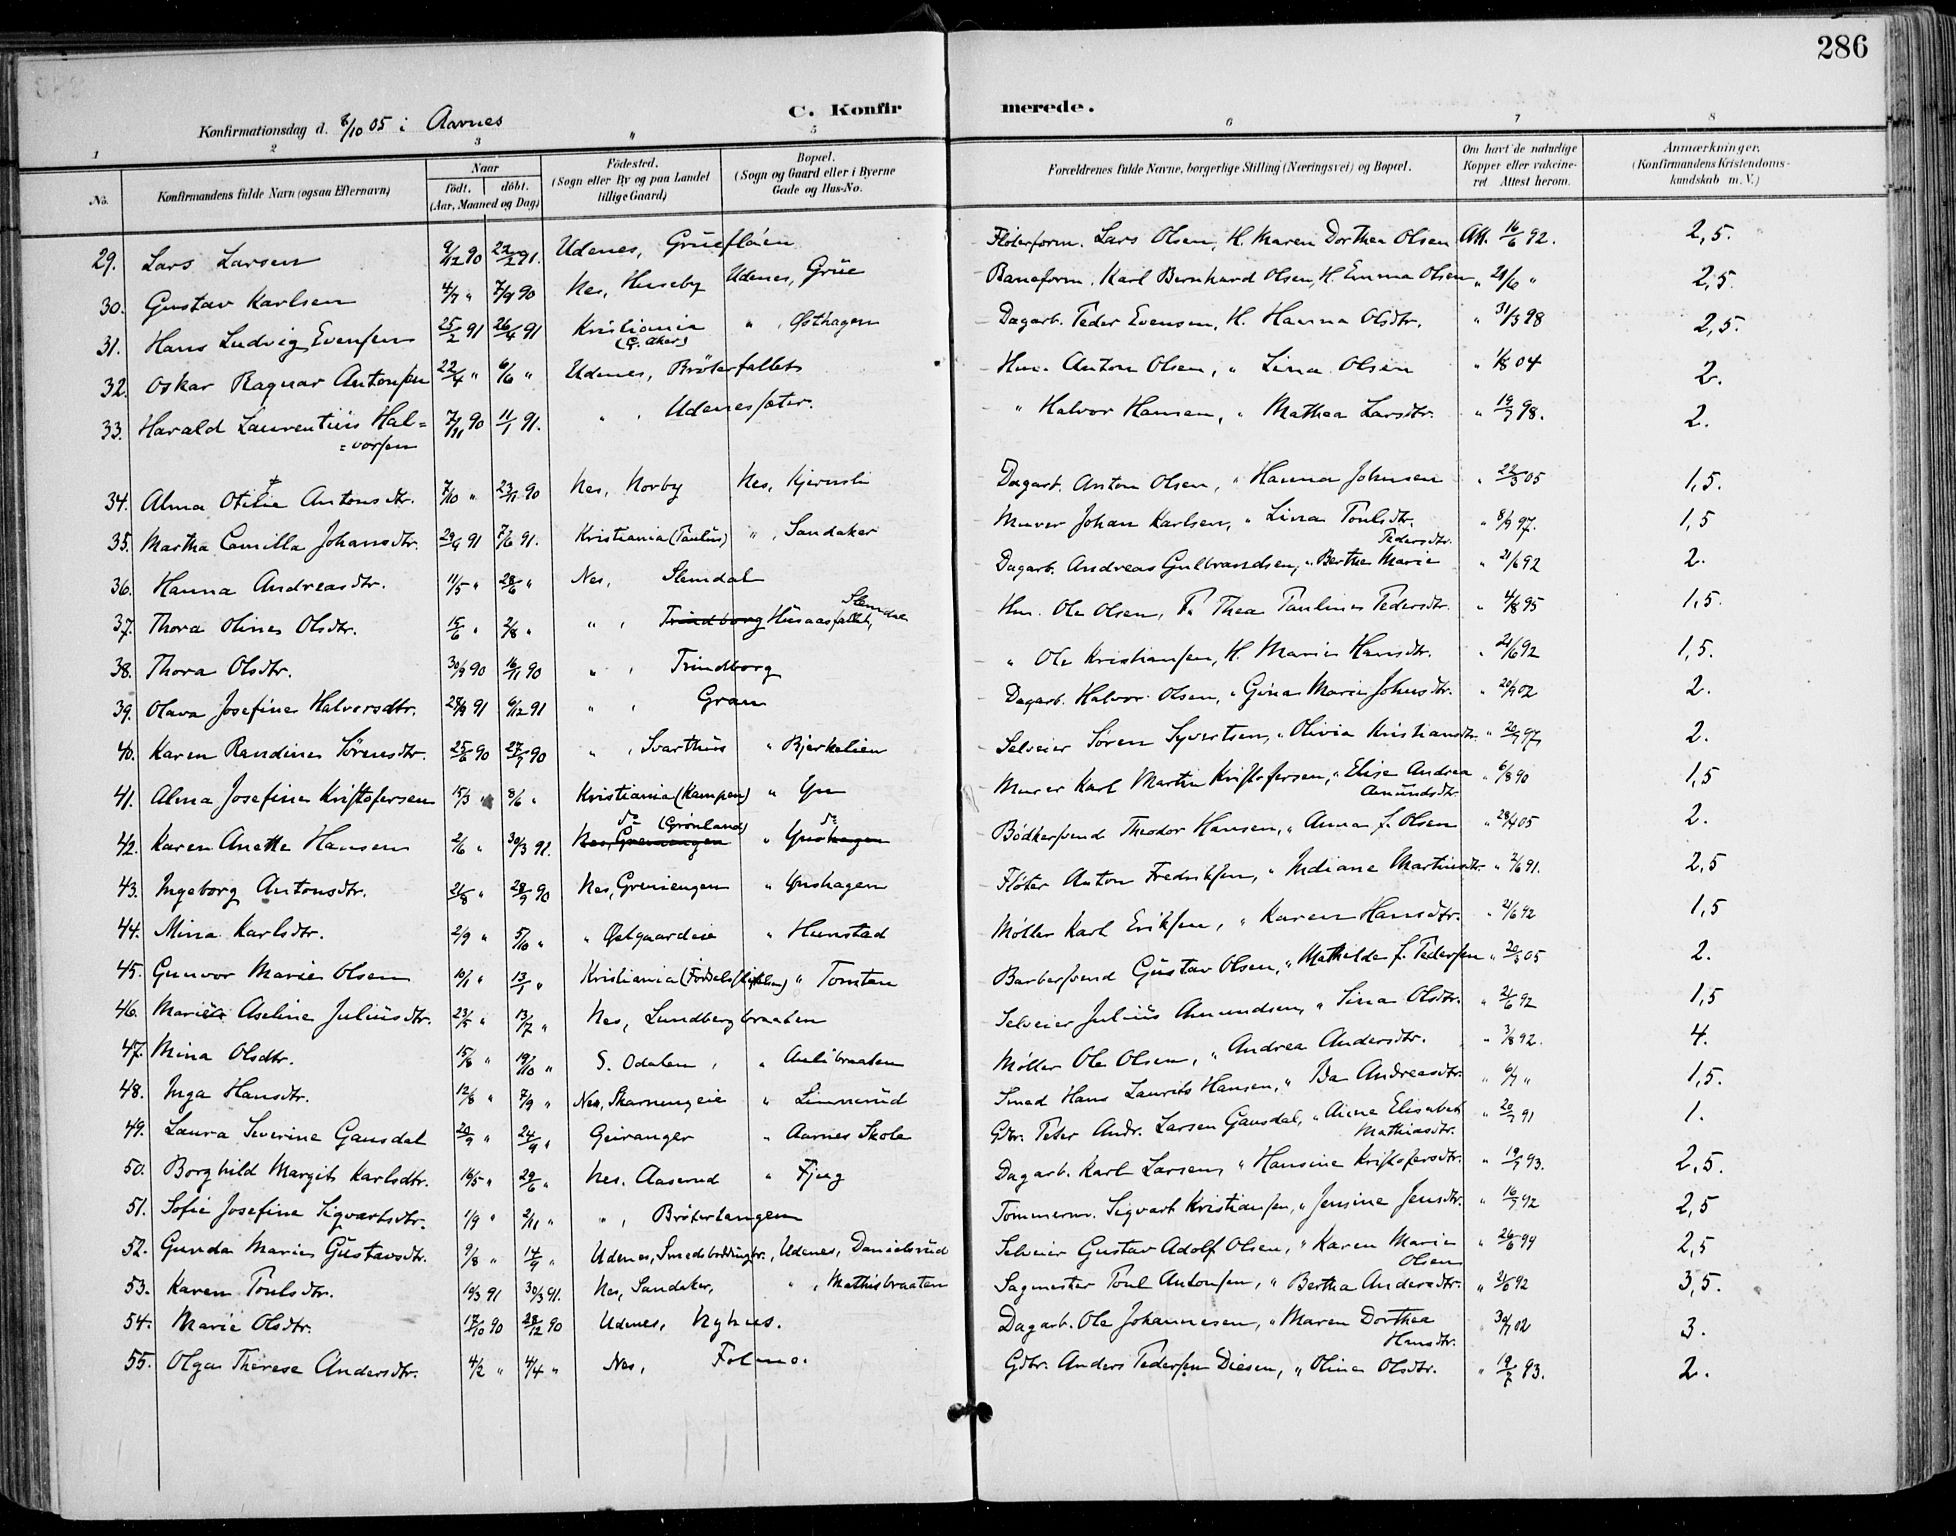 286
C. Konfirmerede.
Konfirmationsdag d. 8/10 05 i Aarnes
1 2 3 " 5 6 7 8
No. Konfirmandens fulde Navn (ogsaa Efternavn) Naar födt. döbt. (Aar, Maaned og Dag) Födested. (Sogn eller By og paa Landet tillige Gaard) Bopæl. (Sogn og Gaard eller i Byerne Gade og Hus-No. Forældrenes fulde Navne, borgerlige Stilling (Næringsvei) og Bopæl. Om havt de naturlige Kopper eller vakcineret Attest herom. Anmærkninger. (Konfirmandens Kristendomskundskab m. V.)
29. Lars Larsen 9/12 90 22/2 91. Udenes, Grueflöien Fløterform. Lars Olsen, H. Maren Dorthea Olsen Att. 16/6 92. 2,5.
30. Gustav Karlsen 4/7 " 7/9 90 Nes, Huseby Udenes, Grüe Baneform. Karl Bernhard Olsen, H. Emma Olsen " 21/6 " 2,5.
31. Hans Ludvig Evensen 25/2 91 26/4 91 Kristiania (G. Aker) " , Østhagen Dagarb. Peder Evensen, H. Hanna Olsdtr. " 31/3 98 2,5.
32. Oskar Ragnar Antonsen 22/4 " 6/6 " Udenes, Bröterfallet Hm. Anton Olsen, " Lina Olsen " 1/8 04 2.
33. Harald Laurentius Hal= =vorsen 7/11 90 11/1 91. " , Udenessæter. " Halvor Hansen, " Mathea Larsdtr. " 19/7 98. 2.
34. Alma Otilie Antonsdtr. 7/10 " 23/11 90 Nes, Norby Nes, Kjernsli Dagarb. Anton Olsen, " Hanna Johnsen " 22/5 05 1,5.
35. Martha Camilla Johansdtr. 29/4 91 7/6 91. Kristiania (Paulus) " , Sandaker Murer Johan Karlsen, " Lina Poulsdtr. " 8/9 97. 1,5
36. Hanna Andreasdtr. 11/5 " 28/6 " Nes, Slemdal Dagarb. Andreas Gulbrandsen, " Berthe Marie Pedersdtr. " 21/6 92 2.
37. Thora Oline Olsdtr. 15/6 " 2/8 " " , Trindborg Husaasfallet, Slemdal Hm. Ole Olsen, F. Thea Pauline Pedersdtr. " 4/8 95 1,5.
38. Thora Olsdtr. 30/9 90 16/11 90 " , Trindborg " Ole Kristiansen, H. Marie Hansdtr. " 21/6 92 1,5.
39. Olava Josefine Halvorsdtr. 91 6/12 91 " , Gran Dagarb. Halvor Olsen, " Gina Marie Johnsdtr. " 20/9 02 2.
40. Karen Randine Sørensdtr. 25/6 90 27/7 90 " , Svarthus " Bjerkelien Selveier Søren Syvertsen, " Olivia Kristiansdtr. " 20/7 97 2.
41. Alma Josefine Kristofersen 15/3 " 8/6 " Kristiania (Kampen) " Yn Murer Karl Martin Kristofersen, " Elise Andrea Amundsdtr " 6/8 90 1,5
42. Karen Anette Hansen 2/6 " 30/3 91. Nes, Greniengen do (Grönland) " Ynshagen do Bödkersvend Theodor Hansen, " Anna f. Olsen " 28/4 05 2.
43. Ingeborg Antonsdtr. 2/8 " 28/9 90 Nes, Greniengen " Ynshagen Fløter Anton Fredriksen, " Indiane Martinsdtr. " 7/6 91. 2,5
44. Mina Karlsdtr. 2/9 " 5/10 " " Østgaardeie " Hunstad Møller Karl Eriksen, " Karen Hansdtr. " 21/6 92 1,5
45. Gunvor Marie Olsen 10/1 " 13/1 " Kristiania (Födselsstiftelsen) " Tomten Barbersvend Gustav Olsen, " Mathilde f. Pedersen " 20/5 05 2.
46. Mariele Aseline Juliusdtr. 23/5 " 13/7 " Nes, Lundbergbraaten Selveier Julius Amundsen, " Sina Olsdtr. " 21/6 92 1,5
47. Mina Olsdtr. 15/6 " 19/10 " S. Odalen, " Aulibraaten Møller Ole Olsen, " Andrea Andersdtr. " 3/8 92. 4.
48. Inga Hansdtr. 12/8 " 7/9 " Nes, Skarnungeie " Linnerud Smed Hans Laurits Hansen, " Ida Andreasdtr. " 6/7 " 1,5.
49. Laura Severine Gausdal 20/9 " 24/9 " Geiranger " Aarnes Skole Gbr. Peter Andr. Larsen Gausdal, " Anne Elisabet Mathiasdtr. " 20/7 91 1.
50. Borghild Margit Karlsdtr. 16/5 " 29/6 " Nes. Aaserud " Fjeng Dagarb. Karl Larsen, " Hansine Kristofersdtr. " 19/7 93. 2,5.
51. Sofie Josefine Sigvartsdtr. 1/9 " 2/11 " " , Brötertangen Tömmerm. Sigvart Kristiansen, " Jensine Jensdtr. " 16/7 92 2,5
52. Gunda Marie Gustavsdtr. 9/8 " 14/9 " Udenes, Smedsröddingbr., Udenes, Danielsrud Selveier Gustav Adolf Olsen, " Karen Marie Olsen " 26/6 94 2,5
53. Karen Poulsdtr. 19/3 91 30/3 91. Nes, Sandaker, " , Mathisbraaten Sagmester Poul Antonsen, " Bertha Andersdtr. " 21/6 92 3,5.
54. Marie Olsdtr. 17/10 90 28/12 90 Udenes, Nyhus. Dagarb. Ole Johannesen, " Maren Dorthea Hansdtr. " 30/7 02 3.
55. Olga Therese Andersdtr. 4/2 " 4/4 " Nes, Folmo. Gdbr. Anders Pedersen Diesen, " Oline Olsdtr. " 19/7 93. 2.